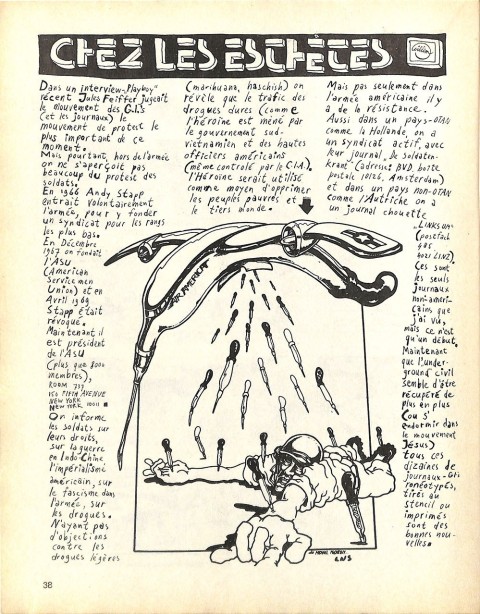 CHEZ LES ESTHÈTES
Dans un interview "Playboy"
récent Jules Feiffer jugeait
le mouvement des G.I.s
(et les journaux) le
mouvement de protest le
plus important de ce
moment.
Mais pourtant, hors de l'armée
on ne s'aperçoit pas
beaucoup du protest des
soldats.
En 1966 Andy Stapp
entrait volontairement
l'armée, pour y fonder
un syndicat pour les rangs
les plus bas.
En Décembre
1967 on fondait
l'ASU
(American
Servicemen
Union) et en
Avril 1969
Stapp était
révoqué.
Maintenant il
est président
de l'ASU
(plus que 8000
membres),
ROOM 737
150 FIFTH AVENUE
NEW YORK
NEW YORK 10011
On informe
les soldats sur
leurs droits,
sur la guerre
en Indo Chine
l'impérialisme
américain, sur
le fascisme dans
l'armée, sur
les drogues.
N'ayant pas
d'objections
contre les
drogues légères
(marihuana, haschish) on
révèle que le trafic des
drogues dures (comme
l'héroïne est mené par
le gouvernement sud-
vietnamien et des hauts
officiers américains
(même contrôlé par le C.I.A.).
l'Héroïne serait utilisé
comme moyen d'opprimer
les peuples pauvres et
le tiers monde.
Mais pas seulement dans
l'armée américaine il y
a de la résistance.
Aussi dans un pays-OTAN
comme la Hollande, on a
un syndicat actif, avec
leur journal "de Soldaten-
krant" (adresse: BVD, boîte
postale 10126, Amsterdam)
et dans un pays non-OTAN
comme l'Autriche on a
un journal chouette
"LINKS UM"
(postfach
4021 LINZ)
Ces sont
les seuls
journaux
non-améri-
cains que
j'ai vus,
mais ce n'est
qu'un début.
Maintenant
que l'under-
ground civil
semble d'être
récupéré de
plus en plus
(ou s'
endormir dans
le mouvement
Jésus)
tous ces
dizaines de
journaux-GIs
ronéotypés,
tirés au
stencil ou
imprimés
sont des
bonnes nou-
velles.
PAN AMERICAN
LNS
38